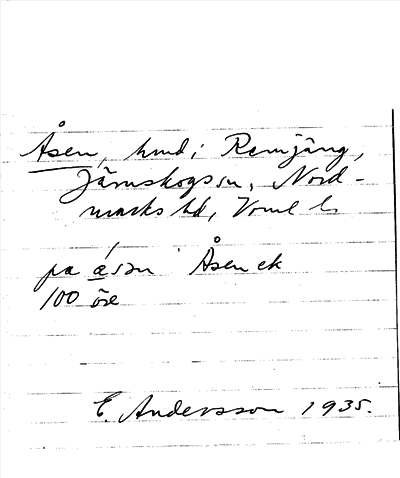 Åsen, hmd i Romjäng,
Järnskogs sn, Nord-
marks hd, Vrml l.
på æ´sən Åsen ek
100 öre
E. Andersson 1935.